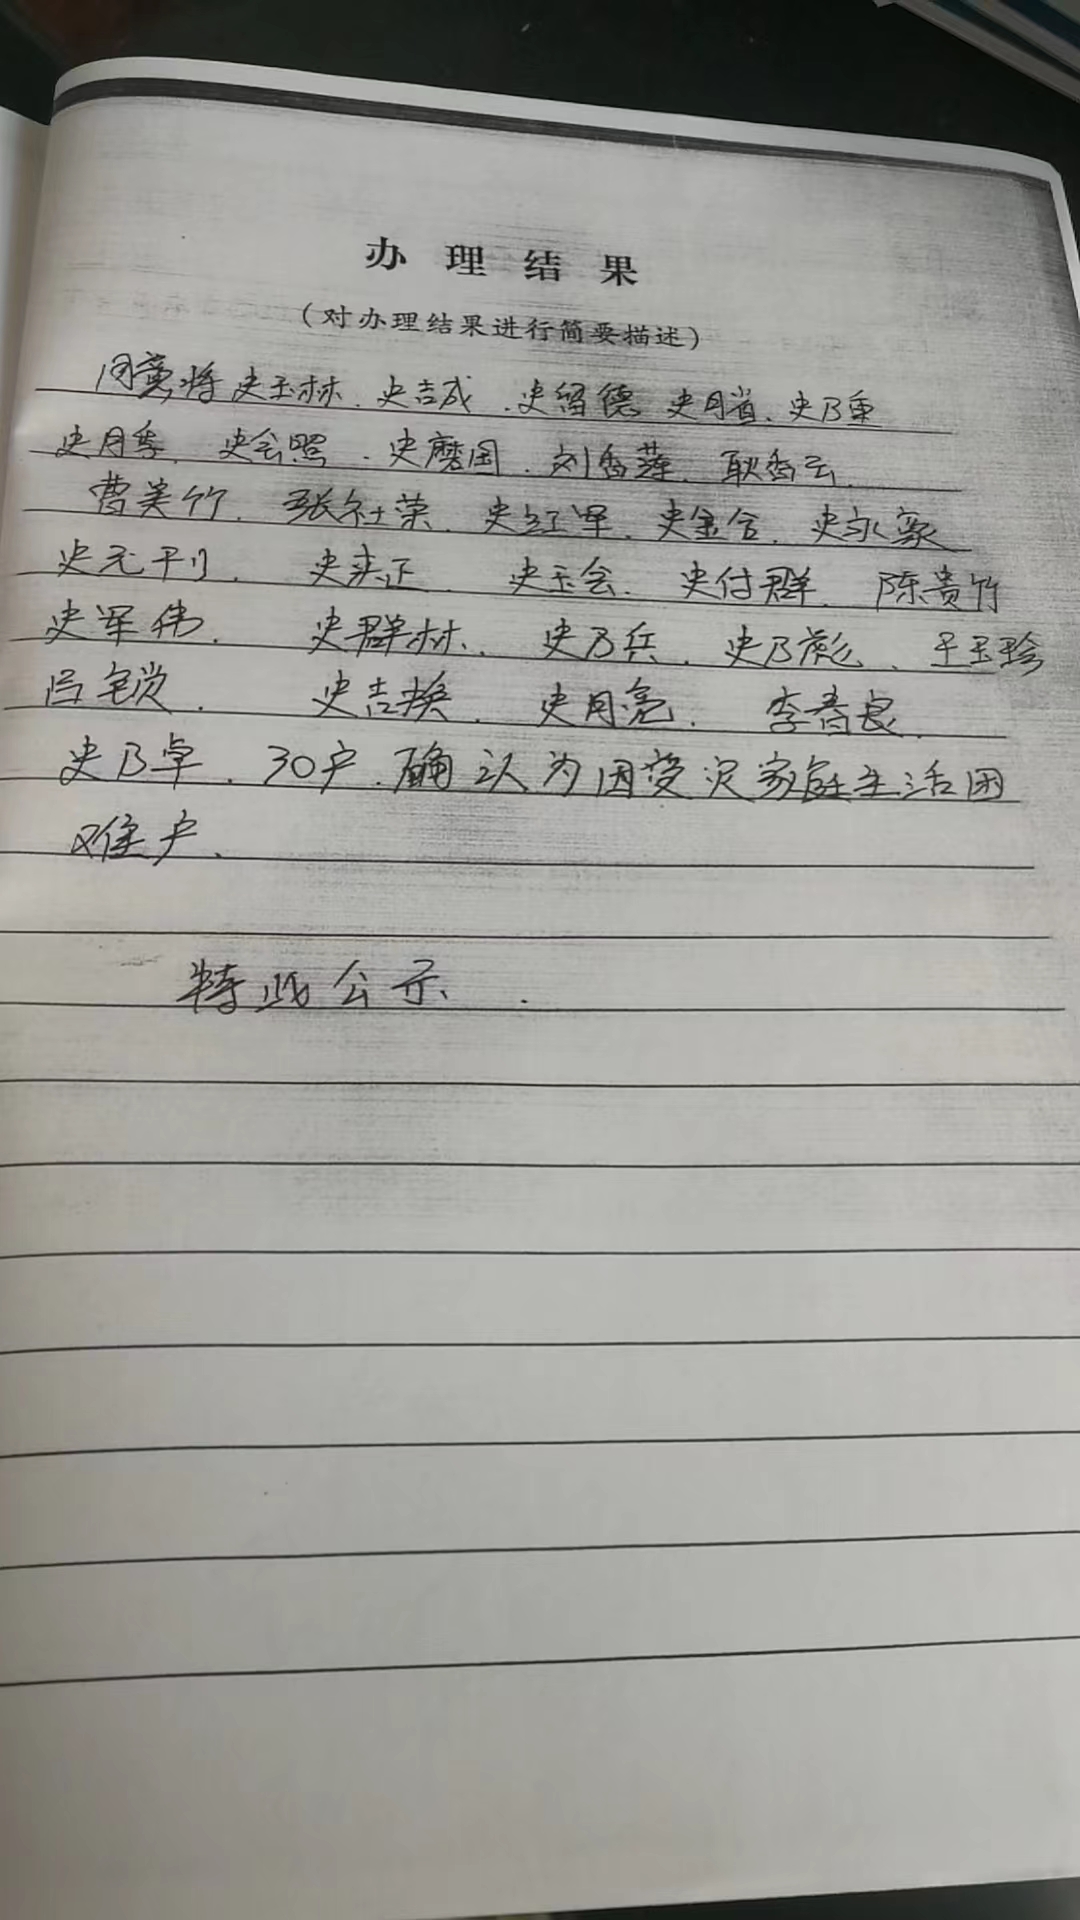 办理结果
(对办理结果进行简要描述)
同意将史玉林、史吉成、史留德 史月省、史乃重
史月季、史会照、史磨国、刘香莲、耿香云、
曹美竹、张社荣、史红军、史金合、史永家
史元刊、史来正 史玉会、史付群、陈贵竹
史军伟、史群林、史乃兵、史乃彪、王玉珍
吕宝锁、史吉焕、史月亮、李春良、
史乃卓、30户、确认为因受灾家庭生活困
难户、
特此公示、